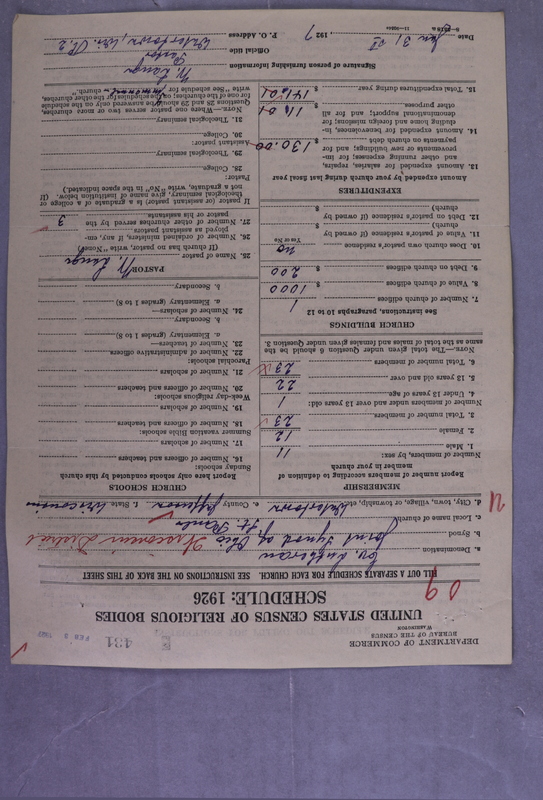 DEPARTMENT OF COMMERCE
BUREAU OF THE CENSUS
WASHINGTON
431
FEB 9 1927
UNITED STATES CENSUS OF RELIGIOUS BODIES
SCHEDULE: 1926
09
FILL OUT A SEPARATE SCHEDULE FOR EACH CHURCH. SEE INSTRUCTIONS ON THE BACK OF THIS SHEET
a. Denomination Ev. Lutheran
b. Synod Joint Synod of Ohio Wisconsin District
c. Local name of church St. Paul's
d. City, town, village, or township, etc. Watertown e. County Jefferson f. State Wisconsin
MEMBERSHIP
Report number of members according to definition of
member in your church
Number of members, by sex:
1. Male 11
2. Female 12
3. Total number of members 23
Number of members under and over 13 years old:
4. Under 13 years of age 1
5. 13 years old and over 22
6. Total number of members 23
NOTE.—The total given under Question 6 should be the
same as the total of males and females given under Question 3.
CHURCH BUILDINGS
See Instructions, paragraphs 10 to 12
7. Number of church edifices 1
8. Value of church edifices $ 1000
9. Debt on church edifices $ 200
10. Does church own pastor's residence no
Yes or No
11. Value of pastor's residence (if owned by
church) $
12. Debt on pastor's residence (if owned by
church) $
EXPENDITURES
Amount expended by your church during last fiscal year
13. Amount expended for salaries, repairs,
and other running expenses; for im-
provements or new buildings; and for
payments on church debt $ 130.00
14. Amount expended for benevolences, in-
cluding home and foreign missions; for
denominational support; and for all
other purposes $ 11.01
15. Total expenditures during year $ 141.01
CHURCH SCHOOLS
Report here only schools conducted by this church
Sunday schools:
16. Number of officers and teachers
17. Number of scholars
Summer vacation Bible schools:
18. Number of officers and teachers
19. Number of scholars
Week-day religious schools:
20. Number of officers and teachers
21. Number of scholars
Parochial schools:
22. Number of administrative officers
23. Number of teachers—
a. Elementary (grades 1 to 8)
b. Secondary
24. Number of scholars—
a. Elementary (grades 1 to 8)
b. Secondary
PASTOR
25. Name of pastor
(If church has no pastor, write "None")
26. Number of ordained ministers, if any, em-
ployed as assistant pastors
27. Number of other churches served by the
pastor or his assistants 3
If pastor (or assistant pastor) is a graduate of a college or
theological seminary, give name of institution below. (If
not a graduate, write "No" in the space indicated.)
Pastor:
28. College
29. Theological seminary
Assistant pastor:
30. College
31. Theological seminary
NOTE.—Where one pastor serves two or more churches,
Questions 28 and 29 should be answered only on the schedule
for one of the churches; on the schedule for the other churches,
write "See schedule for church."
Signature of person furnishing information
Official title Pastor
P. O. Address Watertown, Wis. R. 2
Date Jan 31. 1927